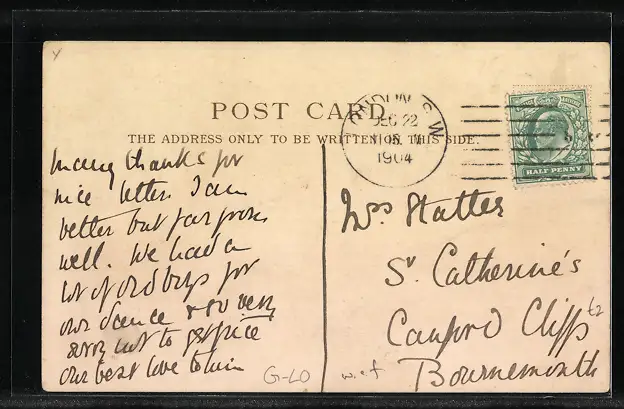 POST CARD
THE ADDRESS ONLY TO BE WRITTEN ON THIS SIDE.
LONDON S.W.
DEC 22
1904
HALF PENNY
many thanks for
nice letter I am
better but far from
well. We had a
lot of old boys for
our dance & so very
sorry not to
our best love to him
Mrs Statter
St. Catherine's
Canford Cliffs
Bournemouth
G-LO
w.e.f
£2